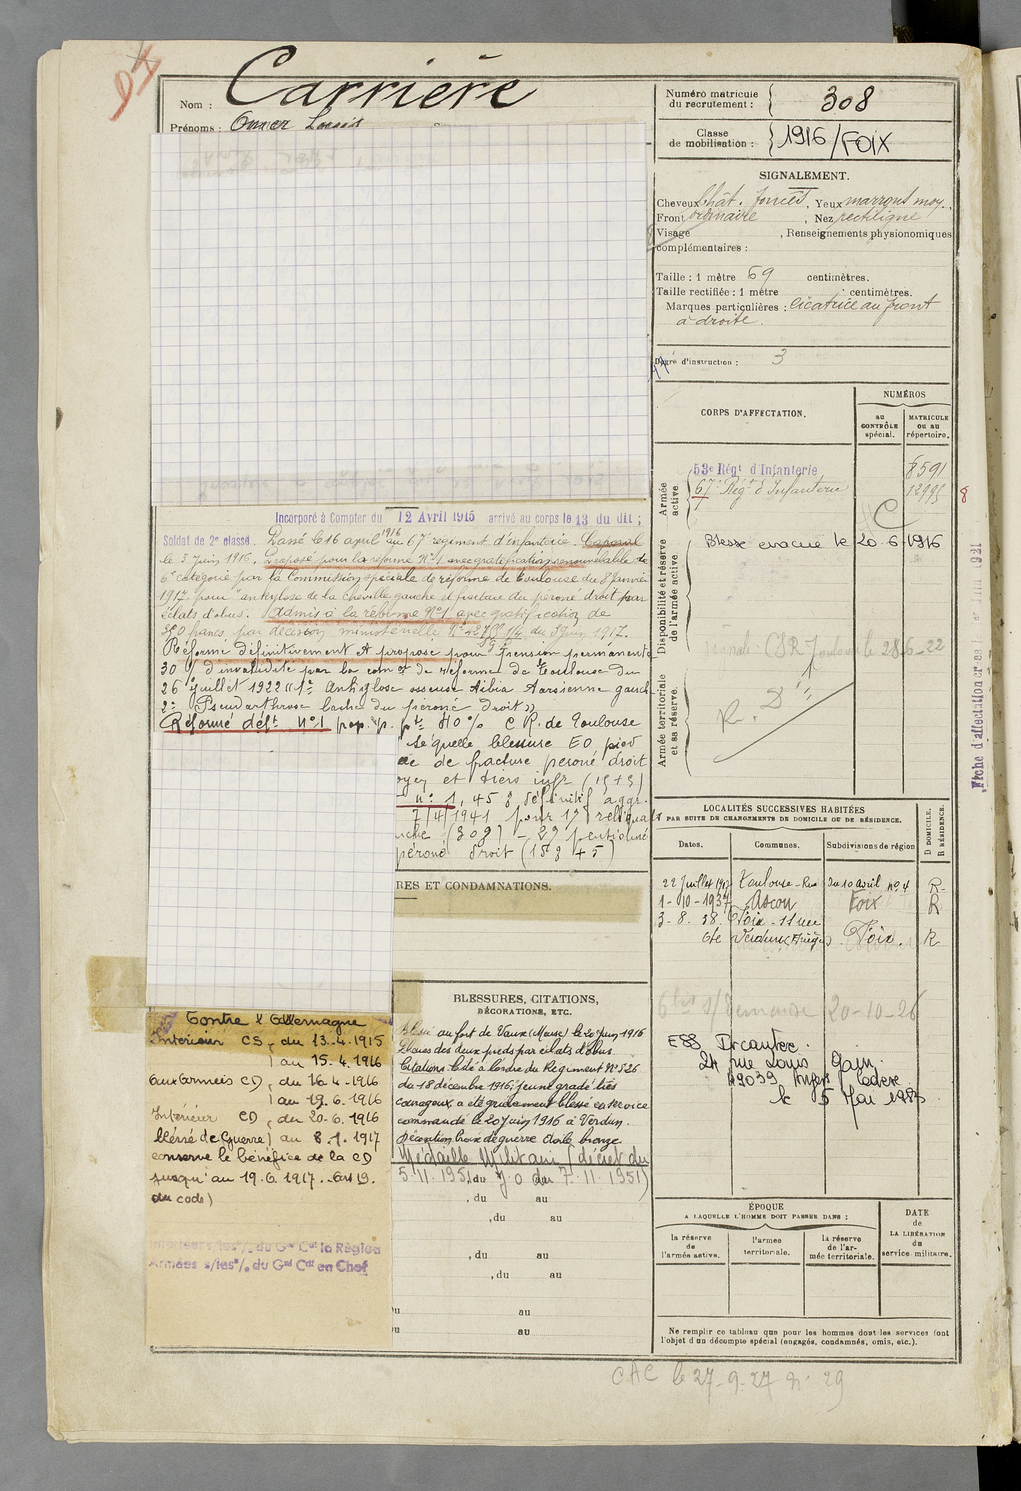 94
Nom : Carrière
Prénoms : Omer
Incorporé à Compter du 12 Avril 1915 arrivé au corps le 13 du dit ;
Soldat de 2e classe. Passé le 16 avril 1916 au 67e régiment d'infanterie. Caporal
le 3 juin 1916. Proposé pour la réforme N°1 avec gratification renouvelable de
6e catégorie par la Commission spéciale de réforme de Toulouse du 8 Janvier
1917 pour "ankylose de la cheville gauche et fracture du péroné droit par
éclats d'obus. Admis à la réforme N°1 avec gratification de
francs par décision ministérielle du 3 juin 1917.
Réformé définitivement et proposé pour pension permanente
30 % d'invalidité par la com on de réforme de Toulouse du
26 juillet 1922 "1° Ankylose osseuse tibia tarsienne gauche
2° Pseudarthrose lâche du péroné droit"
Réformé déft. N°1 prop. p. pte 40 % C R. de Toulouse
Séquelle blessure EO pied
de fracture péroné droit
et tiers infr (15%)
n° 1, 45 % définitif aggr.
7/4/1941 pour 1°) reliquats
(30%) - 2°)
péroné droit (15% 45)
RES ET CONDAMNATIONS.
Contre l'Allemagne
Intérieur CS du 13.4.1915
au 15.4.1916
aux armées CD du 16.4.1916
au 19.6.1916
Intérieur CD du 20.6.1916
blessé de Guerre) au 8.1.1917
conserve le bénéfice de la CD
jusqu'au 19.6.1917. art 19.
du code)
Intérieur s/les % du Gal Cdt la Région
Armées s/les % du Gal Cdt en Chef
BLESSURES, CITATIONS,
DÉCORATIONS, ETC.
Blessé au fort de Vaux (Meuse) le 20 juin 1916
Plaies des deux pieds par éclats d'obus
Citations. Cité à l'ordre du Régiment N° 526
du 18 décembre 1916, jeune gradé très
courageux, a été gravement blessé en service
commandé le 20 juin 1916 à Verdun.
Décoration Croix de guerre étoile bronze
Médaille Militaire (décret du
5.11.1951 du J.O du 7.11.1951)
, du au
,du au
, du au
, du au
au
au
Numéro matricule
du recrutement : 308
Classe
de mobilisation : 1916/FOIX
SIGNALEMENT.
Cheveux chât. foncés, Yeux marrons moy.,
Front ordinaire, Nez rectiligne
Visage , Renseignements physionomiques
complémentaires :
Taille : 1 mètre 69 centimètres.
Taille rectifiée : 1 mètre centimètres.
Marques particulières : cicatrice au front
à droite.
Degré d'instruction : 3
CORPS D'AFFECTATION.
NUMÉROS
au
CONTRÔLE
spécial.
MATRICULE
OU AU
RÉPERTOIRE.
Armée
active
53e Régt d'Infanterie 8591
67e Régt d'Infanterie 8
Disponibilité et réserve
de l'armée active.
Blessé évacué le 20.6.1916
CSR Toulouse le 28-6-22
Armée territoriale
et sa réserve.
R. D"
LOCALITÉS SUCCESSIVES HABITÉES
PAR SUITE DE CHANGEMENTS DE DOMICILE OU DE RÉSIDENCE.
Dates. Communes. Subdivisions de région
D DOMICILE.
R RÉSIDENCE.
22 Juillet 1917 Toulouse - Rue du 10 avril n° 4 R
1-10-1937 Ascou Foix R
3-8-38 Foix - 11 rue
Verdun (Ariège) Foix. R
20-10-26
24 rue Louis Gain
49039 Angers Cedex
le 5 Mai 1983
ÉPOQUE
A LAQUELLE L'HOMME DOIT PASSER DANS :
la réserve
de
l'armée active.
l'armée
territoriale.
la réserve
de l'ar-
mée territoriale.
DATE
de
LA LIBÉRATION
du
service militaire.
Ne remplir ce tableau que pour les hommes dont les services font
l'objet d'un décompte spécial (engagés, condamnés, omis, etc.).
CAC le 27-9-27 n° 29
Fiche d'affectation